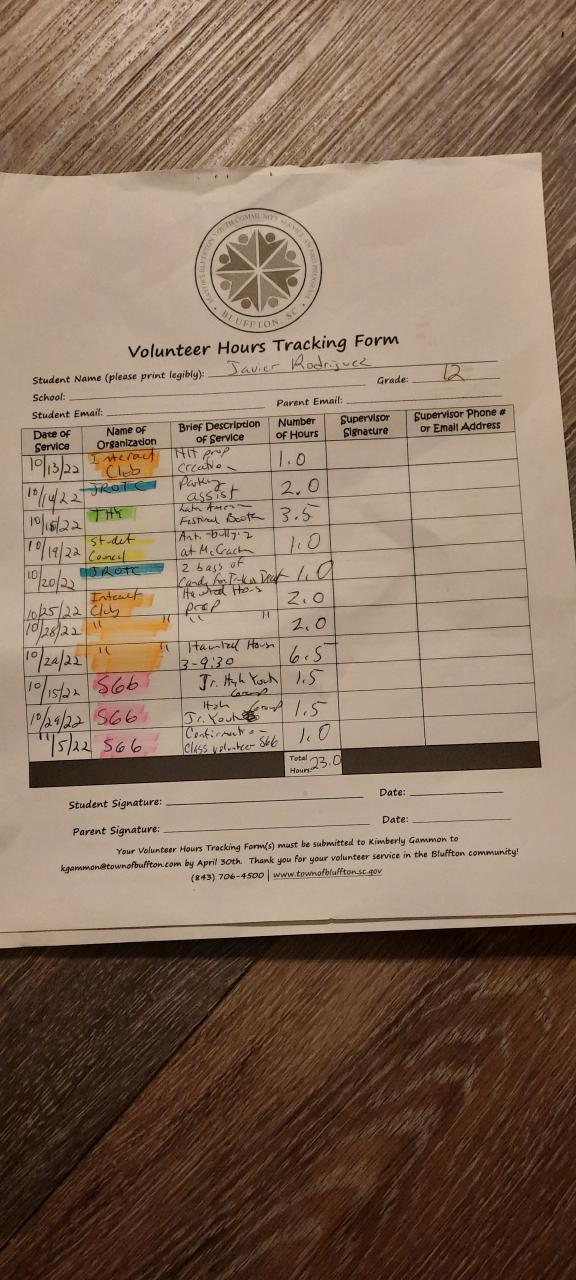 MAYOR'S BLUFFTON YOUTH COMMUNITY SERVICE AWARD PROGRAM
• BLUFFTON, SC •
Volunteer Hours Tracking Form
Student Name (please print legibly): Javier Rodriguez
Grade: 12
School:
Student Email: Parent Email:
Date of Service | Name of Organization | Brief Description of Service | Number of Hours | Supervisor Signature | Supervisor Phone # or Email Address
10/13/22 Interact Club prop Creation 1.0
10/14/22 JROTC Parking assist 2.0
22 Festival Booth 3.5
10/19/22 Student Council Anti-bullying at McCracken 1.0
10/20/22 JROTC 2 bags of Candy for Trunk or Treat 1.0
10/25/22 Interact Club Haunted House prep 2.0
10/28/22 " " " " 2.0
" " Haunted House 3-9:30 6.5
10/15/22 S66 Jr. High Youth Group 1.5
S66 Jr. High Youth Group 1.5
11/5/22 S66 Confirmation Class volunteer S66 1.0
Total Hours: 23.0
Student Signature: Date:
Parent Signature: Date:
Your Volunteer Hours Tracking Form(s) must be submitted to Kimberly Gammon to
kgammon@townofbuffton.com by April 30th. Thank you for your volunteer service in the Bluffton community!
(843) 706-4500 | www.townofbluffton.sc.gov